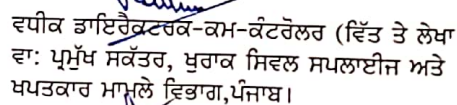 ਵਧੀਕ ਡਾਇਰੈਕਟਰਕ-ਕਮ-ਕੰਟਰੋਲਰ (ਵਿੱਤ ਤੇ ਲੇਖਾ
ਵਾ: ਪ੍ਰਮੁੱਖ ਸਕੱਤਰ, ਖੁਰਾਕ ਸਿਵਲ ਸਪਲਾਈਜ ਅਤੇ
ਖਪਤਕਾਰ ਮਾਮਲੇ ਵਿਭਾਗ,ਪੰਜਾਬ।